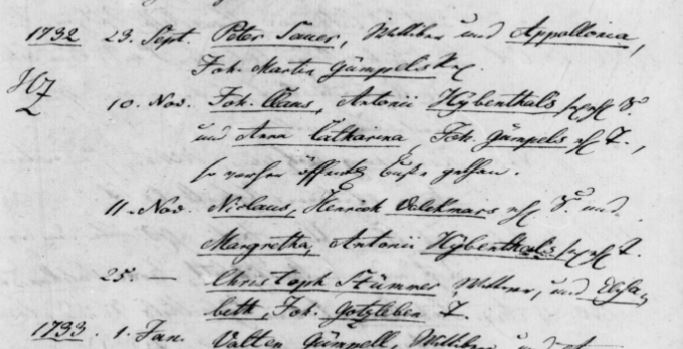 1732 23. Sept. Peter Sauer, Wittiber und Appollonia,
Joh. Martin Gümpels
HZ
10. Nov. Joh. Claus, Antonii Hÿbenthals S.
und Anna Catharina, Joh. Gümpels T.,
so vorher öffentl. Buße gethan.
11. Nov. Niclaus, Henrich Volckmars S. und
Margretha, Antonii Hÿbenthals T.
25. — Christoph Stümmer Wittwer, und Elisa
beth, Joh. Gotzleben T.
1733. 1. Jan. Valten Gümpell, Wittiber und